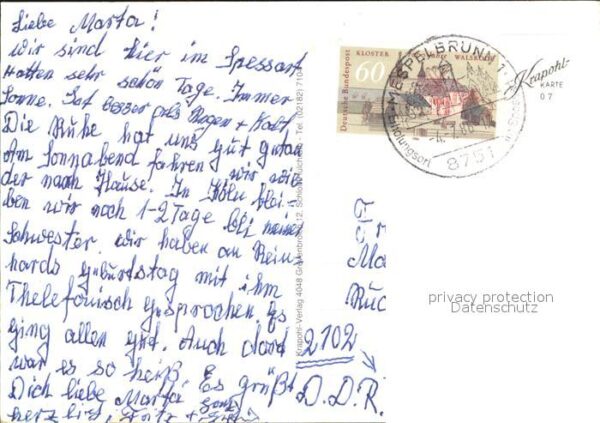 Liebe Marta!
wir sind hier im Spessart
Hatten sehr schön Tage. Immer
Sonne. Ist besser als Regen + Kalt
Die Ruhe hat uns gut getan
Am Sonnabend fahren wir wie
der nach Hause. In Köln blei-
ben wir noch 1-2 Tage bei meiner
Schwester. Wir haben an Rein-
hards Geburtstag mit ihm
Thelefonisch gesprochen. Es
ging allen gut. Auch dord
war es so heiß!
Dich liebe Marta Es grüßt
herzlist, Fritz +
Krapohl-Verlag 4048 Grevenbroich 12, Schloß Hülchrath - Tel. (02182) 7104
Deutsche Bundespost
KLOSTER WALSRODE
60
MESPELBRUNN 1
8751
Erholungsort
Krapohl-
KARTE
07
Ma
Ruc
2102
D.D.R.
privacy protection
Datenschutz